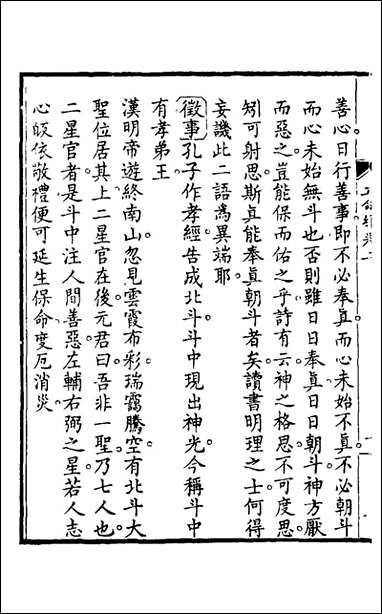 善心日行善事即不必奉真而心未始不真。不必朝斗
而心未始無斗也。否則雖日日奉真日日朝斗神方厭
而惡之。豈能保而佑之乎。詩有云。神之格思。不可度思。
矧可射思。斯真能奉真朝斗者矣。讀書明理之士何得
妄譏此二語為異端耶。
徵事 孔子作孝經告成北斗。斗中現出神光。今稱斗中
有孝弟王。
漢明帝遊終南山。忽見雲霞布彩。瑞靄騰空。有北斗大
聖位居其上。二星官在後。元君曰。吾非一聖。乃七人也。
二星官者。是斗中注人間善惡左輔右弼之星。若人志
心皈依敬禮便可延生保命度厄消災。